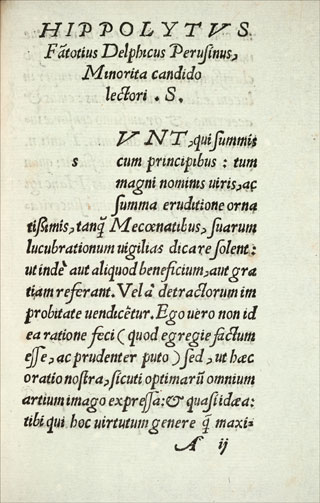 HIPPOLYTVS
Fãtotius Delphicus Perusinus,
Minorita candido
lectori . S.
s VNT, qui summis
cum principibus : tum
magni nominis uiris, ac
summa eruditione orna
tissimis, tanq̃ Mecœnatibus, suarum
lucubrationum uigilias dicare solent :
ut indè aut aliquod beneficium, aut gra
tiam referant. Vel à detractorum im
probitate uendicẽtur. Ego uero non id
ea ratione feci ( quod egregie factum
esse, ac prudenter puto ) sed, ut hæc
oratio nostra, sicuti optimarũ omnium
artium imago expressa: & quasi idæa:
tibi qui hoc uirtutum genere q̃ maxi-
A ij